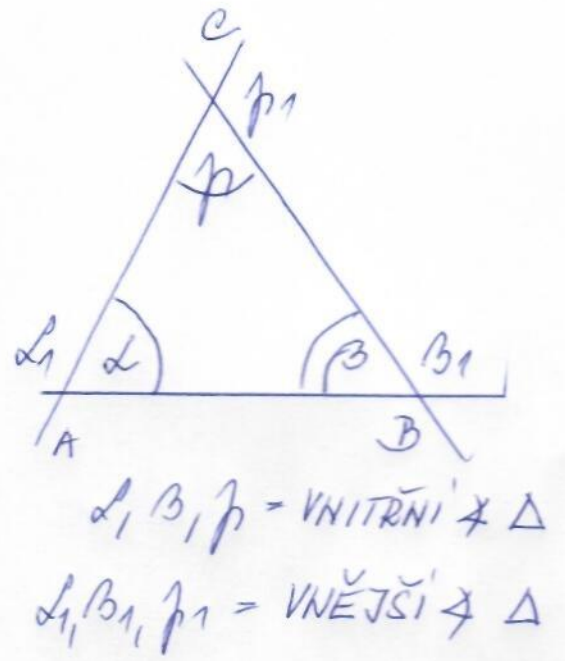 C
γ1
γ
α1 α β β1
A B
α, β, γ = VNITŘNÍ ∢ Δ
α1, β1, γ1 = VNĚJŠÍ ∢ Δ